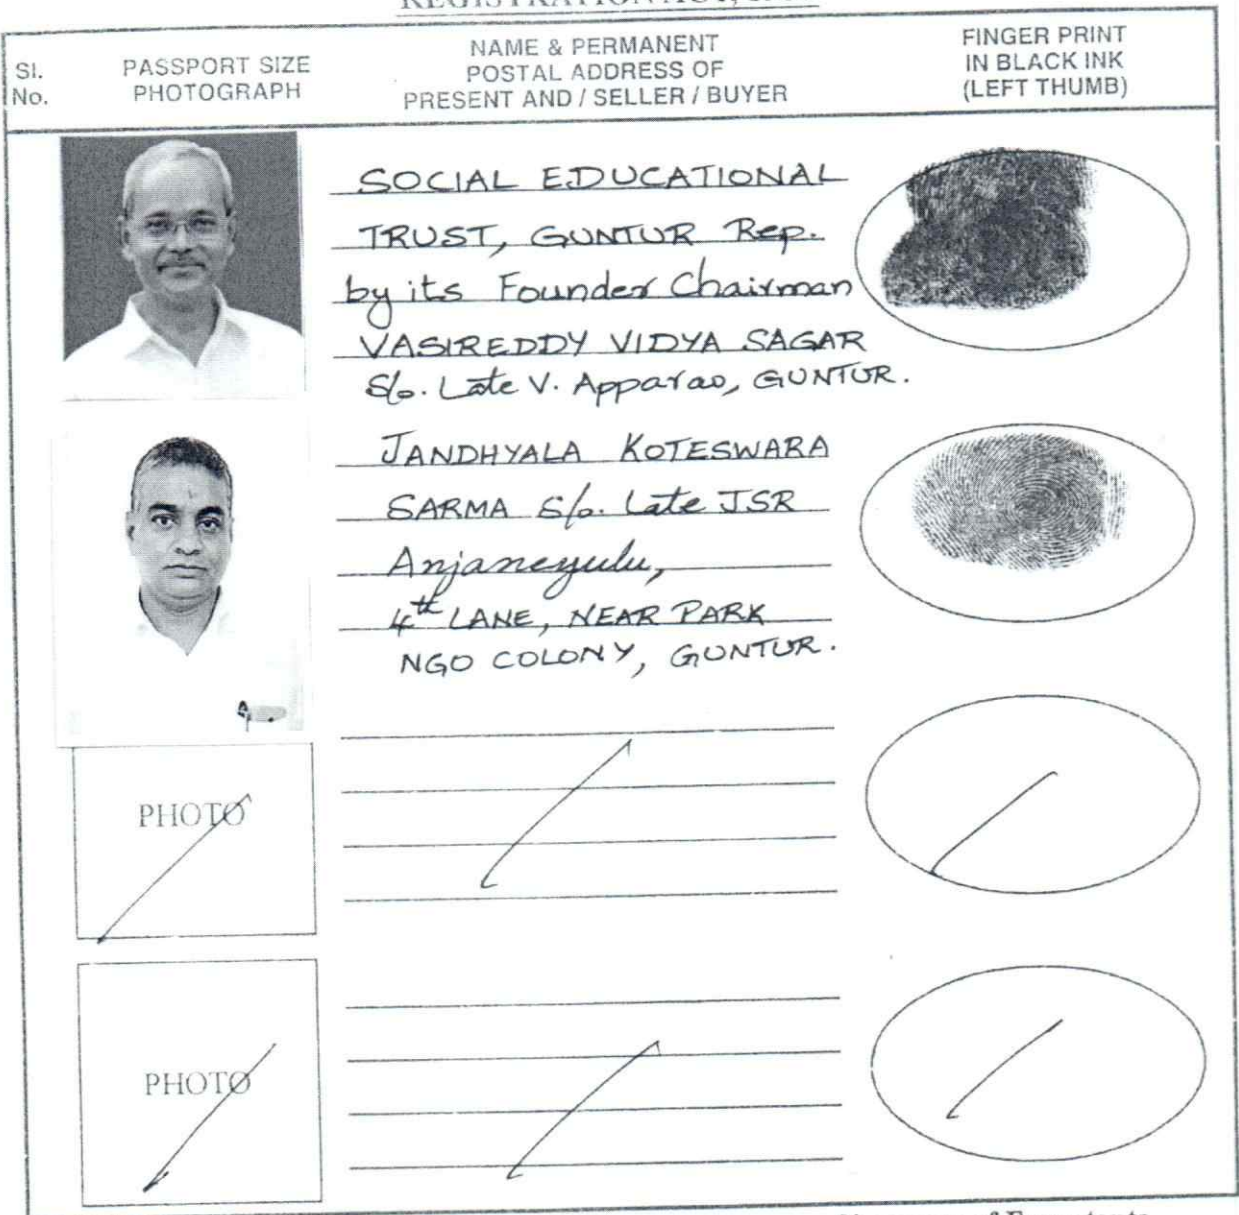 REGISTRATION ACT,
Sl.
No.
PASSPORT SIZE
PHOTOGRAPH
NAME & PERMANENT
POSTAL ADDRESS OF
PRESENT AND / SELLER / BUYER
FINGER PRINT
IN BLACK INK
(LEFT THUMB)
SOCIAL EDUCATIONAL
TRUST, GUNTUR Rep.
by its Founder Chairman
VASIREDDY VIDYA SAGAR
S/o. Late V. Apparao, GUNTUR.
JANDHYALA KOTESWARA
SARMA S/o. Late JSR
Anjaneyulu,
4th LANE, NEAR PARK
NGO COLONY, GUNTUR.
PHOTO
PHOTO